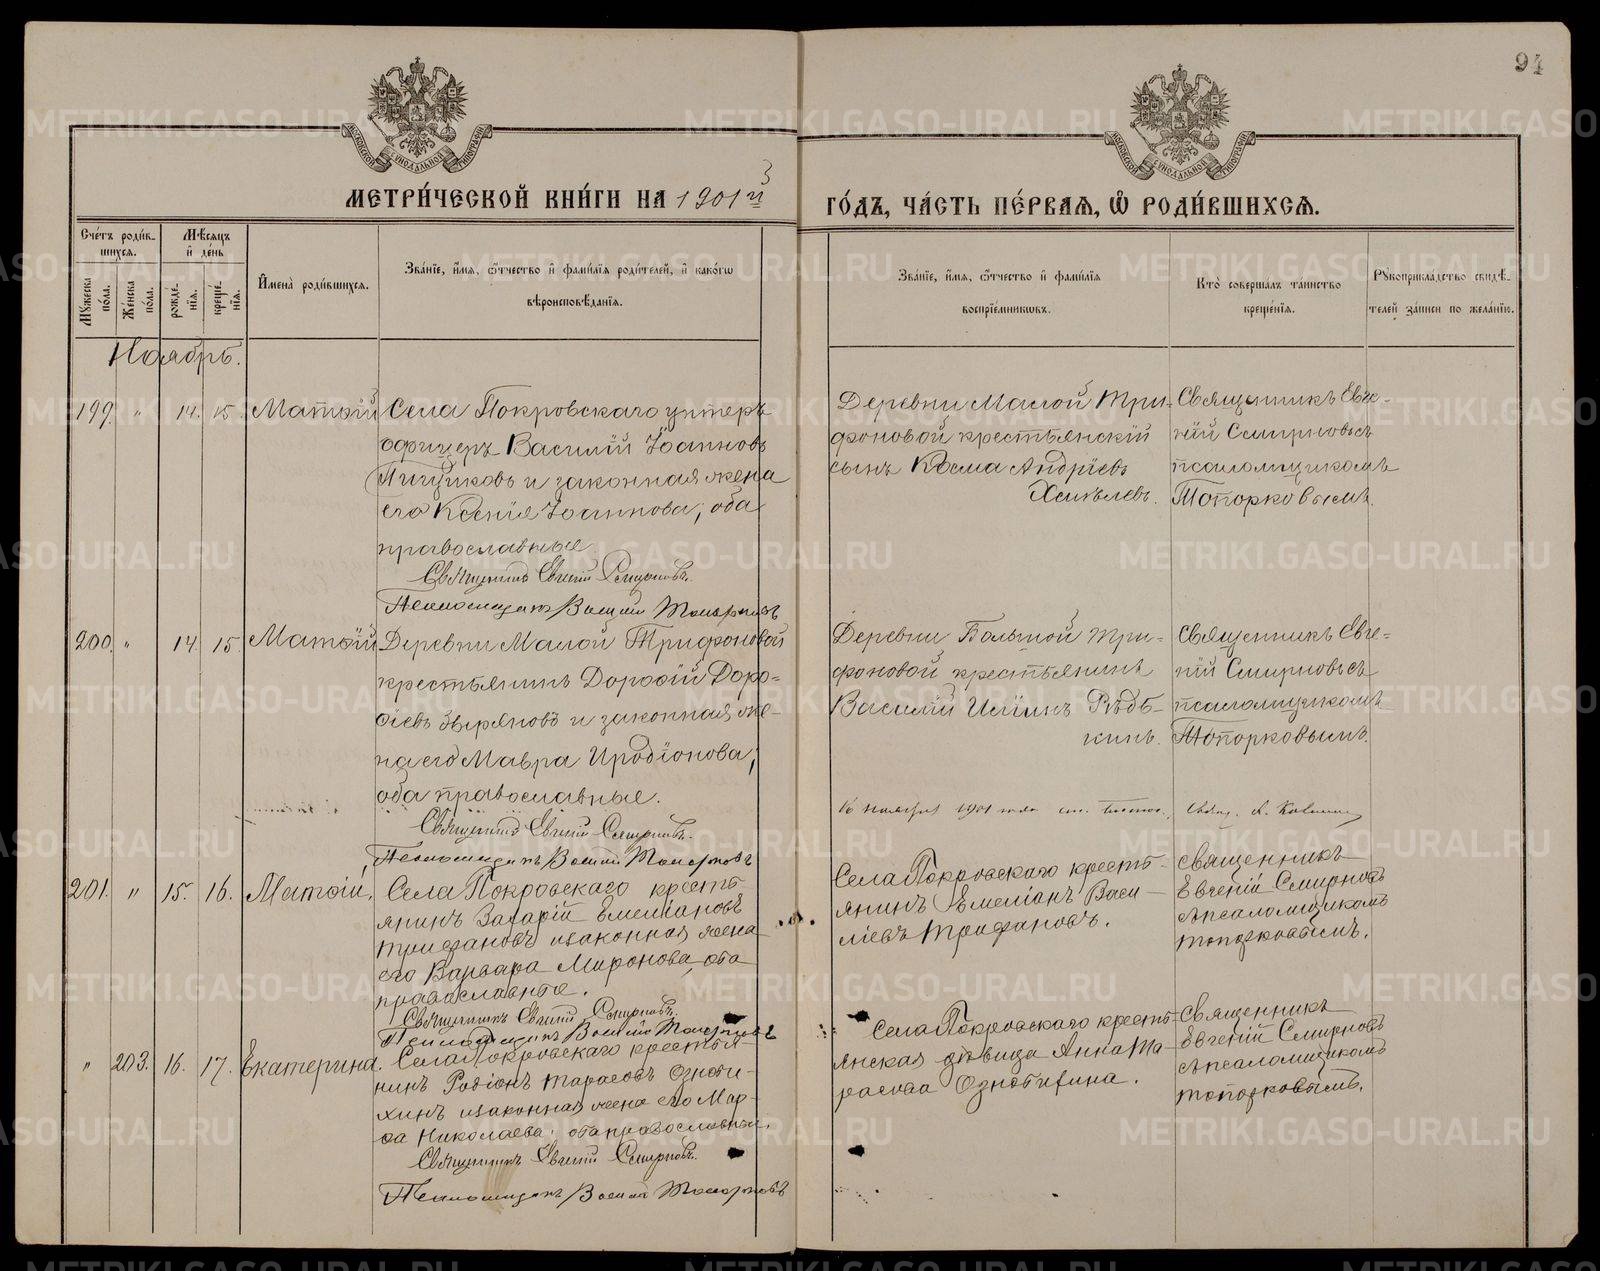 94
МОСКОВСКОЙ СУНОДАЛЬНОЙ ТИПОГРАФІИ
МОСКОВСКОЙ СУНОДАЛЬНОЙ ТИПОГРАФІИ
МЕТРИ́ЧЕСКОЙ КНИ́ГИ НА 1901й
3
ГО́ДЪ, ЧА́СТЬ ПЕ́РВАѦ, Ѡ РОДИ́ВШИХСѦ.
Сче́тъ роди́в-
шихсѧ.
Мѣ́сѧцъ
и҆ де́нь
Мꙋ́жеска по́ла.
Же́нска по́ла.
рожде́-
нїѧ.
креще́-
нїѧ.
И҆мена̀ роди́вшихсѧ.
Зва́нїе, и҆́мѧ, ѻ҆́тчество и҆ фами́лїѧ роди́телей, и҆ како́гѡ
вѣроисповѣ́данїѧ.
Зва́нїе, и҆́мѧ, ѻ҆́тчество и҆ фами́лїѧ
воспрїе́мникѡвъ.
Кто̀ соверша́лъ та́инство
креще́нїѧ.
Рꙋкоприкла́дство свидѣ́-
телей за́писи по жела́нїю.
Ноябрь.
199. " 14. 15. Матѳій
Села Покровскаго унтеръ
офицеръ Василій Іоанновъ
Пичуговъ и законная жена
его Ксенія Іоаннова, оба
православные
Священникъ Евгеній Смирновъ.
Псаломщикъ Василій Топорковъ
Деревни Малой Три-
фоновой крестьянскій
сынъ Косма Андріевъ
Хмѣлевъ.
Священникъ Евге-
ній Смирновъ съ
псаломщикомъ
Топорковымъ.
200. " 14. 15. Матѳій
Деревни Малой Трифоновой
крестьянинъ Дороѳій Доро-
ѳіевъ Звѣряновъ и законная же-
на его Мавра Иродіонова,
оба православные.
Священникъ Евгеній Смирновъ.
Псаломщикъ Василій Топорковъ
Деревни Большой Три-
фоновой крестьянинъ
Василій Иліинъ Рѣдь-
кинъ.
Священникъ Евге-
ній Смирновъ съ
псаломщикомъ
Топорковымъ.
16 ноября 1901 года Свящ. А.
201. " 15. 16. Матѳій.
Села Покровскаго кресть-
янинъ Захарій Емеліановъ
Трифановъ и законная жена
его Варвара Миронова, оба
православные.
Священникъ Евгеній Смирновъ.
Псаломщикъ Василій Топорковъ
Села Покровскаго кресть-
янинъ Емеліанъ Васи-
ліевъ Трифановъ.
Священникъ
Евгеній Смирновъ
съ псаломщикомъ
Топорковымъ.
" 203. 16. 17. Екатерина.
Села Покровскаго крестья-
нинъ Родіонъ Тарасовъ Одноши-
хинъ и законная жена его Мар-
ѳа Николаева, оба православные.
Священникъ Евгеній Смирновъ.
Псаломщикъ Василій Топорковъ
Села Покровскаго кресть-
янская дѣвица Анна Та-
расова
Священникъ
Евгеній Смирновъ
съ псаломщикомъ
Топорковымъ.